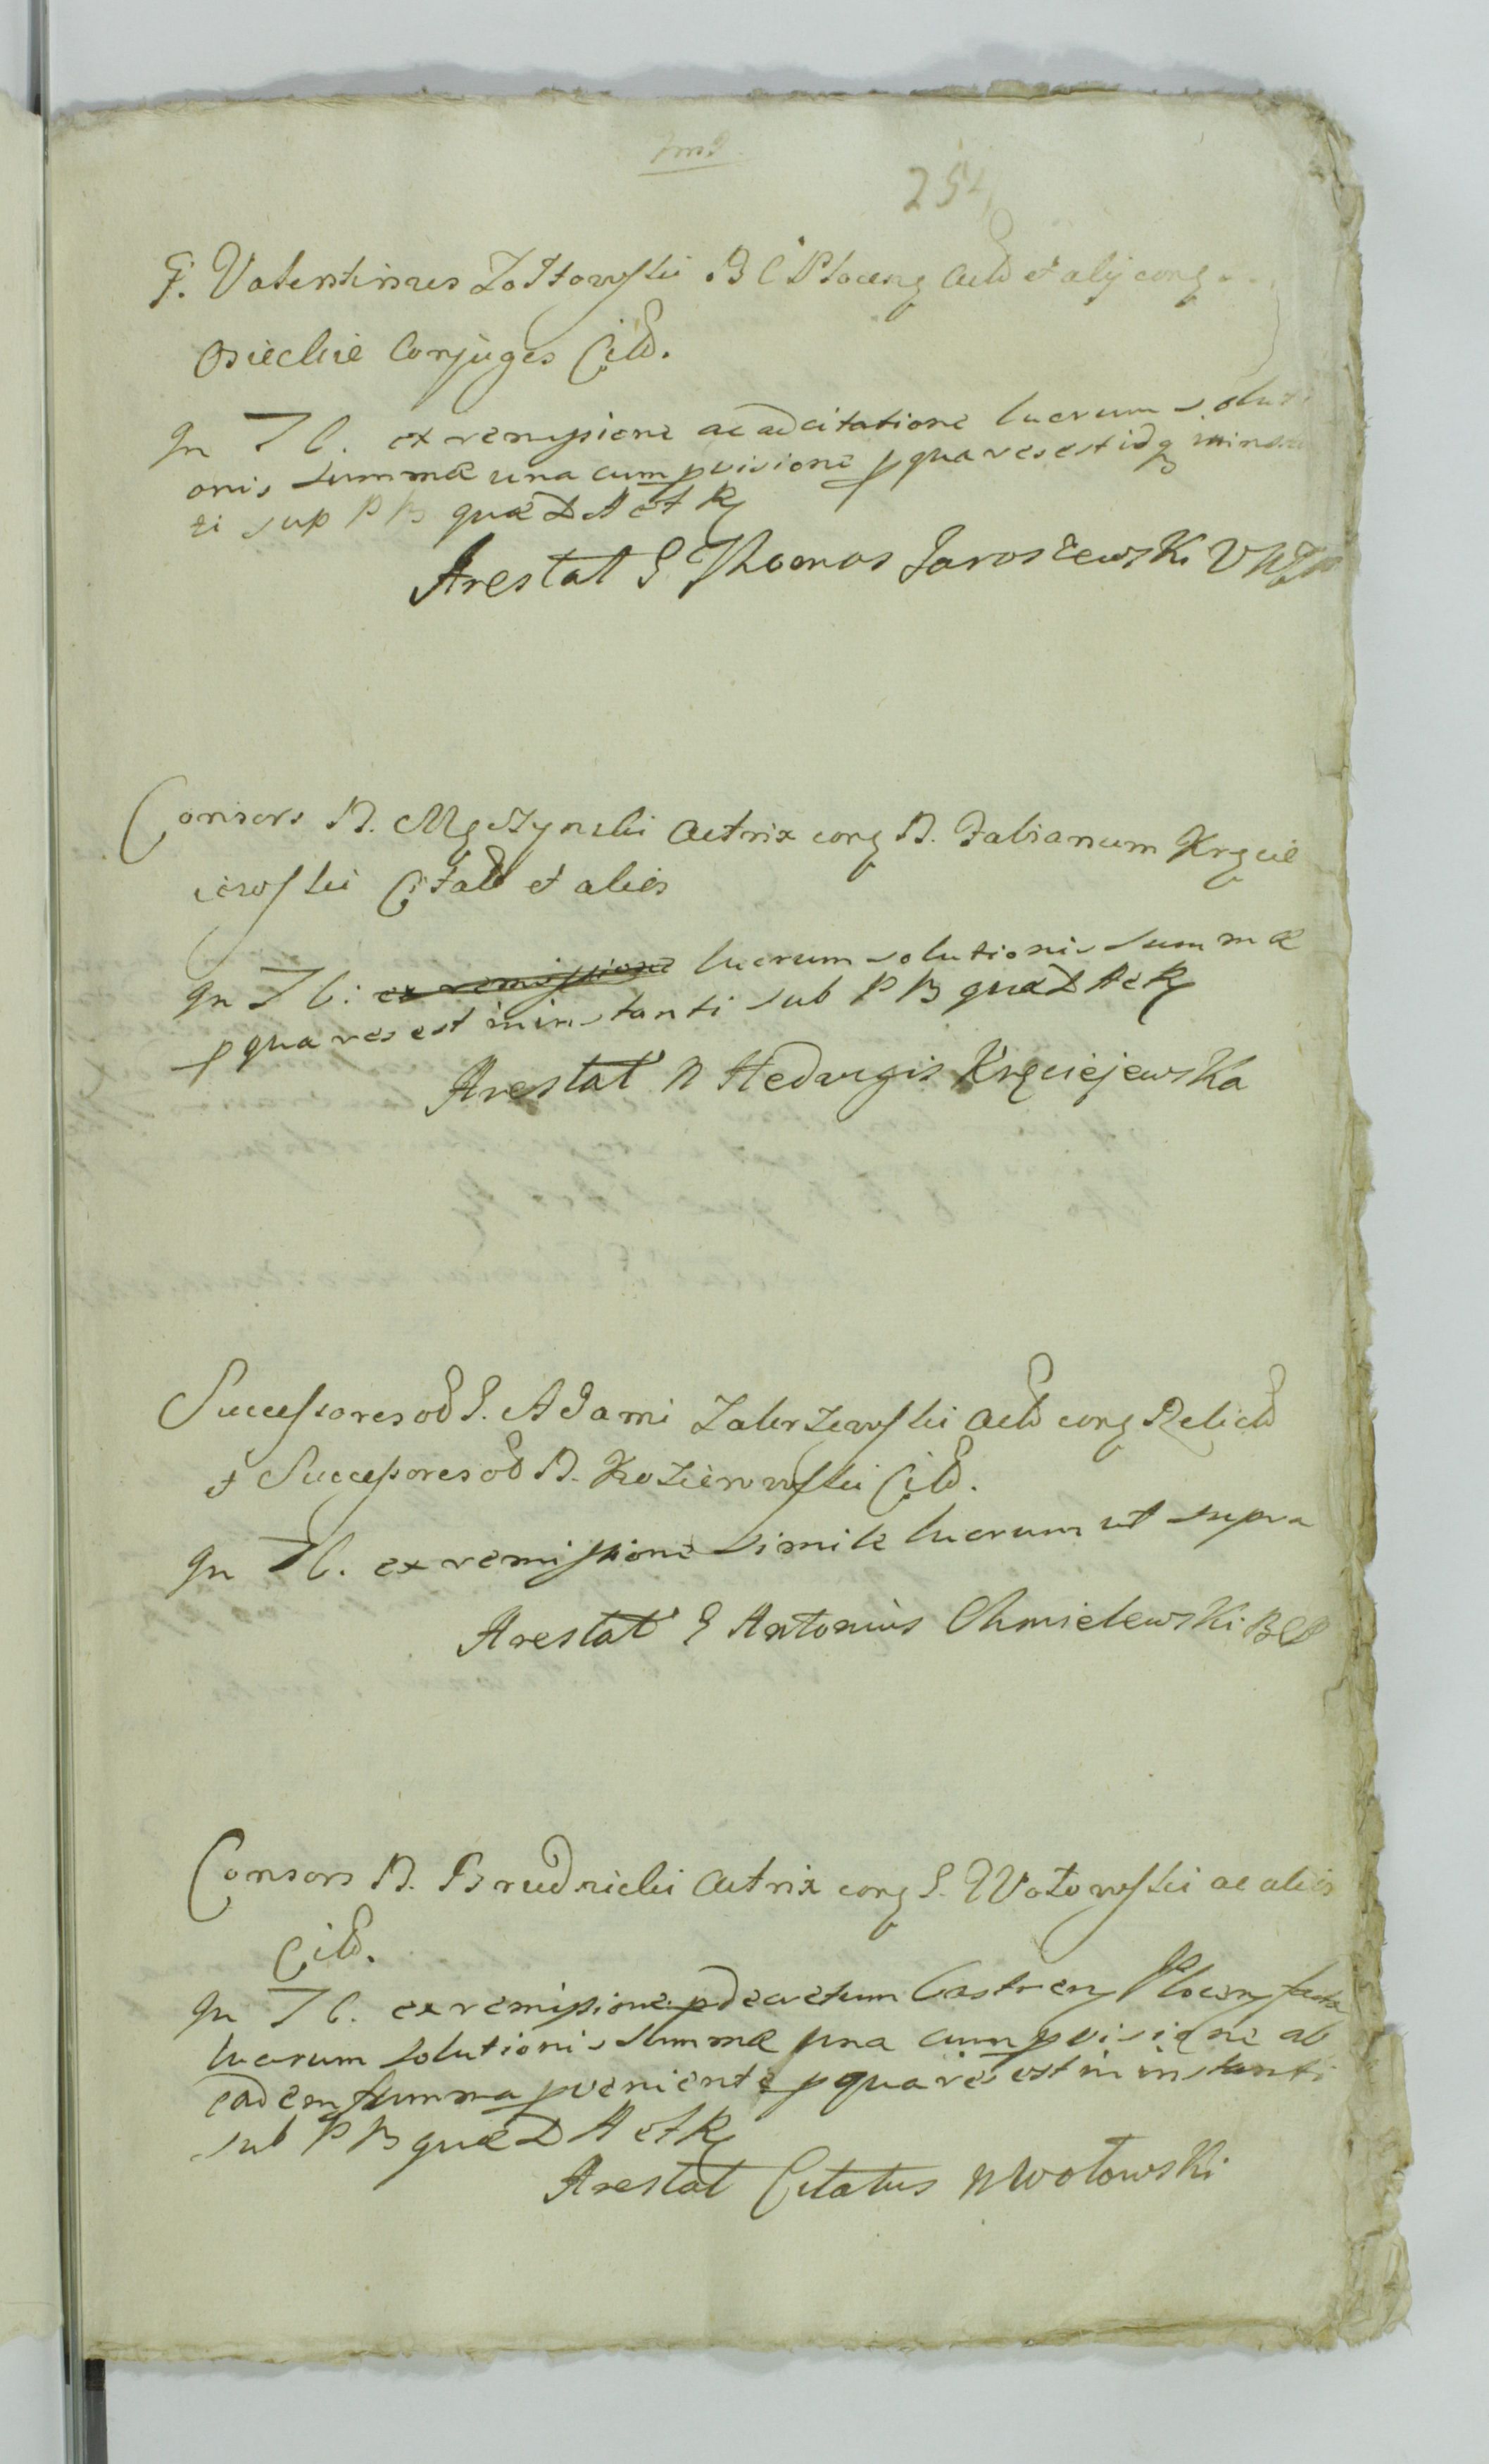 254
G. Valentinus Zołtowski B C Plocens Act et alij cong
Osieckie Conjuges Cit.
In T C. ex remissione ac adcitatione lucrum soluti
onis summæ una cum pvisione p qua res est idq in insta
ti sup P B quæ D A et R
Arestat G Thomas Jarosżewski
Consors N. Mgżtynski Actrix cong N. Fabianum Kręcie
iewski Citat et alios
In T C: ex remissione lucrum solutionis summæ
p qua res est in instanti sub P B quæ D A e R
Arestat N Hedvigis Kręciejewska
Successores od G. Adami Zakrzewski Act cong Relict
et Successores od N. Kozierowski Cit.
In T C. ex remissione simile lucrum ut supra
Arestat G Antonius Chmielewski B C P
Consors N. Brudnicki Actrix cong G. Wołowski ac alios
Cit.
In T C. ex remissione p decretum Castren Plocen facta
lucrum solutionis summæ una cum pvisione ab
eadem summa pveniente p qua res est in instanti
sub P B quæ D A et R
Arestat Citatus N Wołowski